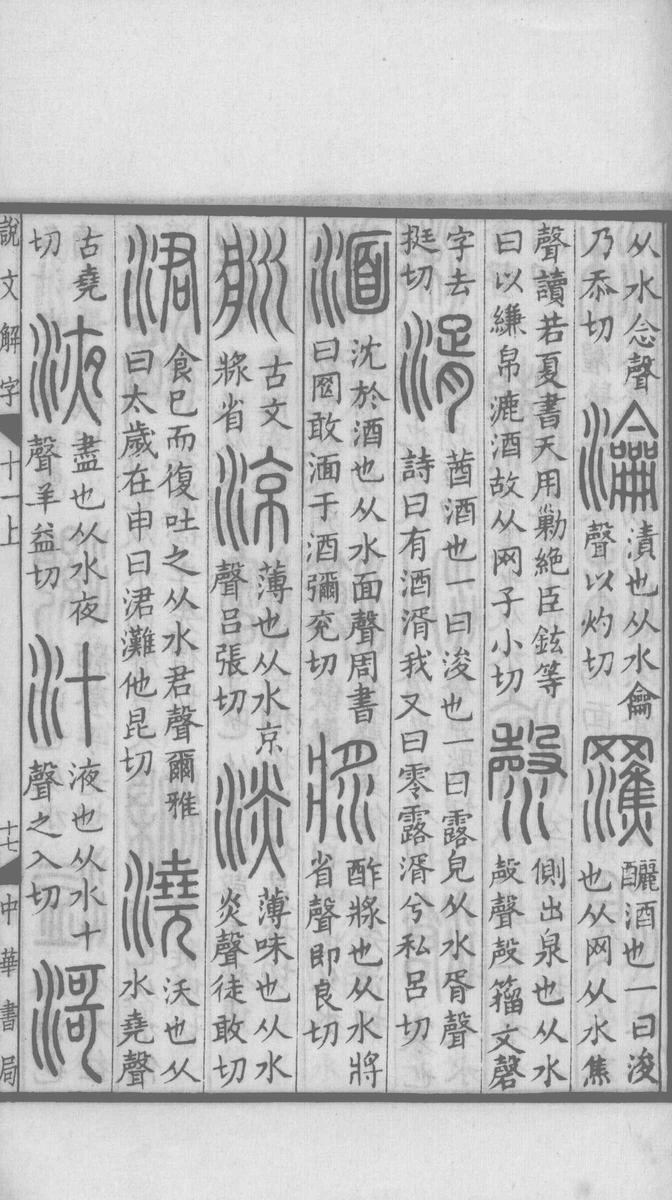 从水念聲
乃忝切
瀹
漬也从水龠
聲以灼切
𤅢
釃酒也一曰浚
也从网从水焦
聲讀若夏書天用勦絕臣鉉等
曰以縑帛漉酒故从网子小切
漀
側出泉也从水
殸聲殸籀文磬
字去
挺切
湑
莤酒也一曰浚也一曰露皃从水胥聲
詩曰有酒湑我又曰零露湑兮私呂切
湎
沈於酒也从水面聲周書
曰罔敢湎于酒彌兖切
漿
酢漿也从水將
省聲即良切
古文
漿省
涼
薄也从水京
聲呂張切
淡
薄味也从水
炎聲徒敢切
涒
食已而復吐之从水君聲爾雅
曰太歲在申曰涒灘他昆切
澆
沃也从
水堯聲
古堯
切
液
盡也从水夜
聲羊益切
汁
液也从水十
聲之入切
滒
說文解字
十一上
十七
中華書局